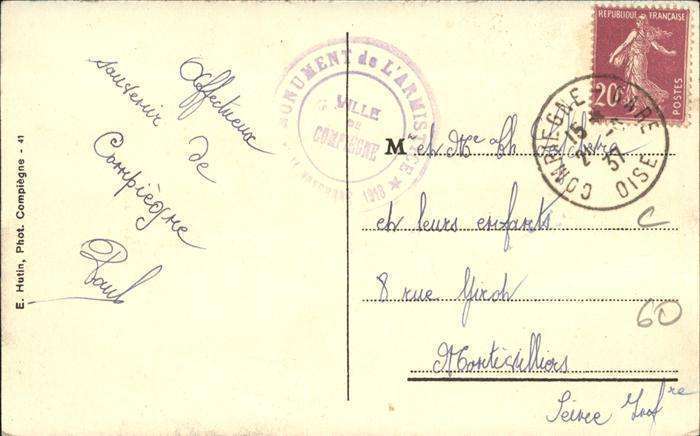 E. Hutin, Phot. Compiègne - 41
Affectueux
souvenir de
Compiègne
Paul
MONUMENT de L'ARMISTICE
VILLE
DE
COMPIEGNE
11 NOVEMBRE 1918
REPUBLIQUE FRANÇAISE
20c
POSTES
COMPIEGNE GARE
15
2
37
OISE
M et Me Ch
et leurs enfants
8 rue
Montivilliers
Seine Infre
C
60